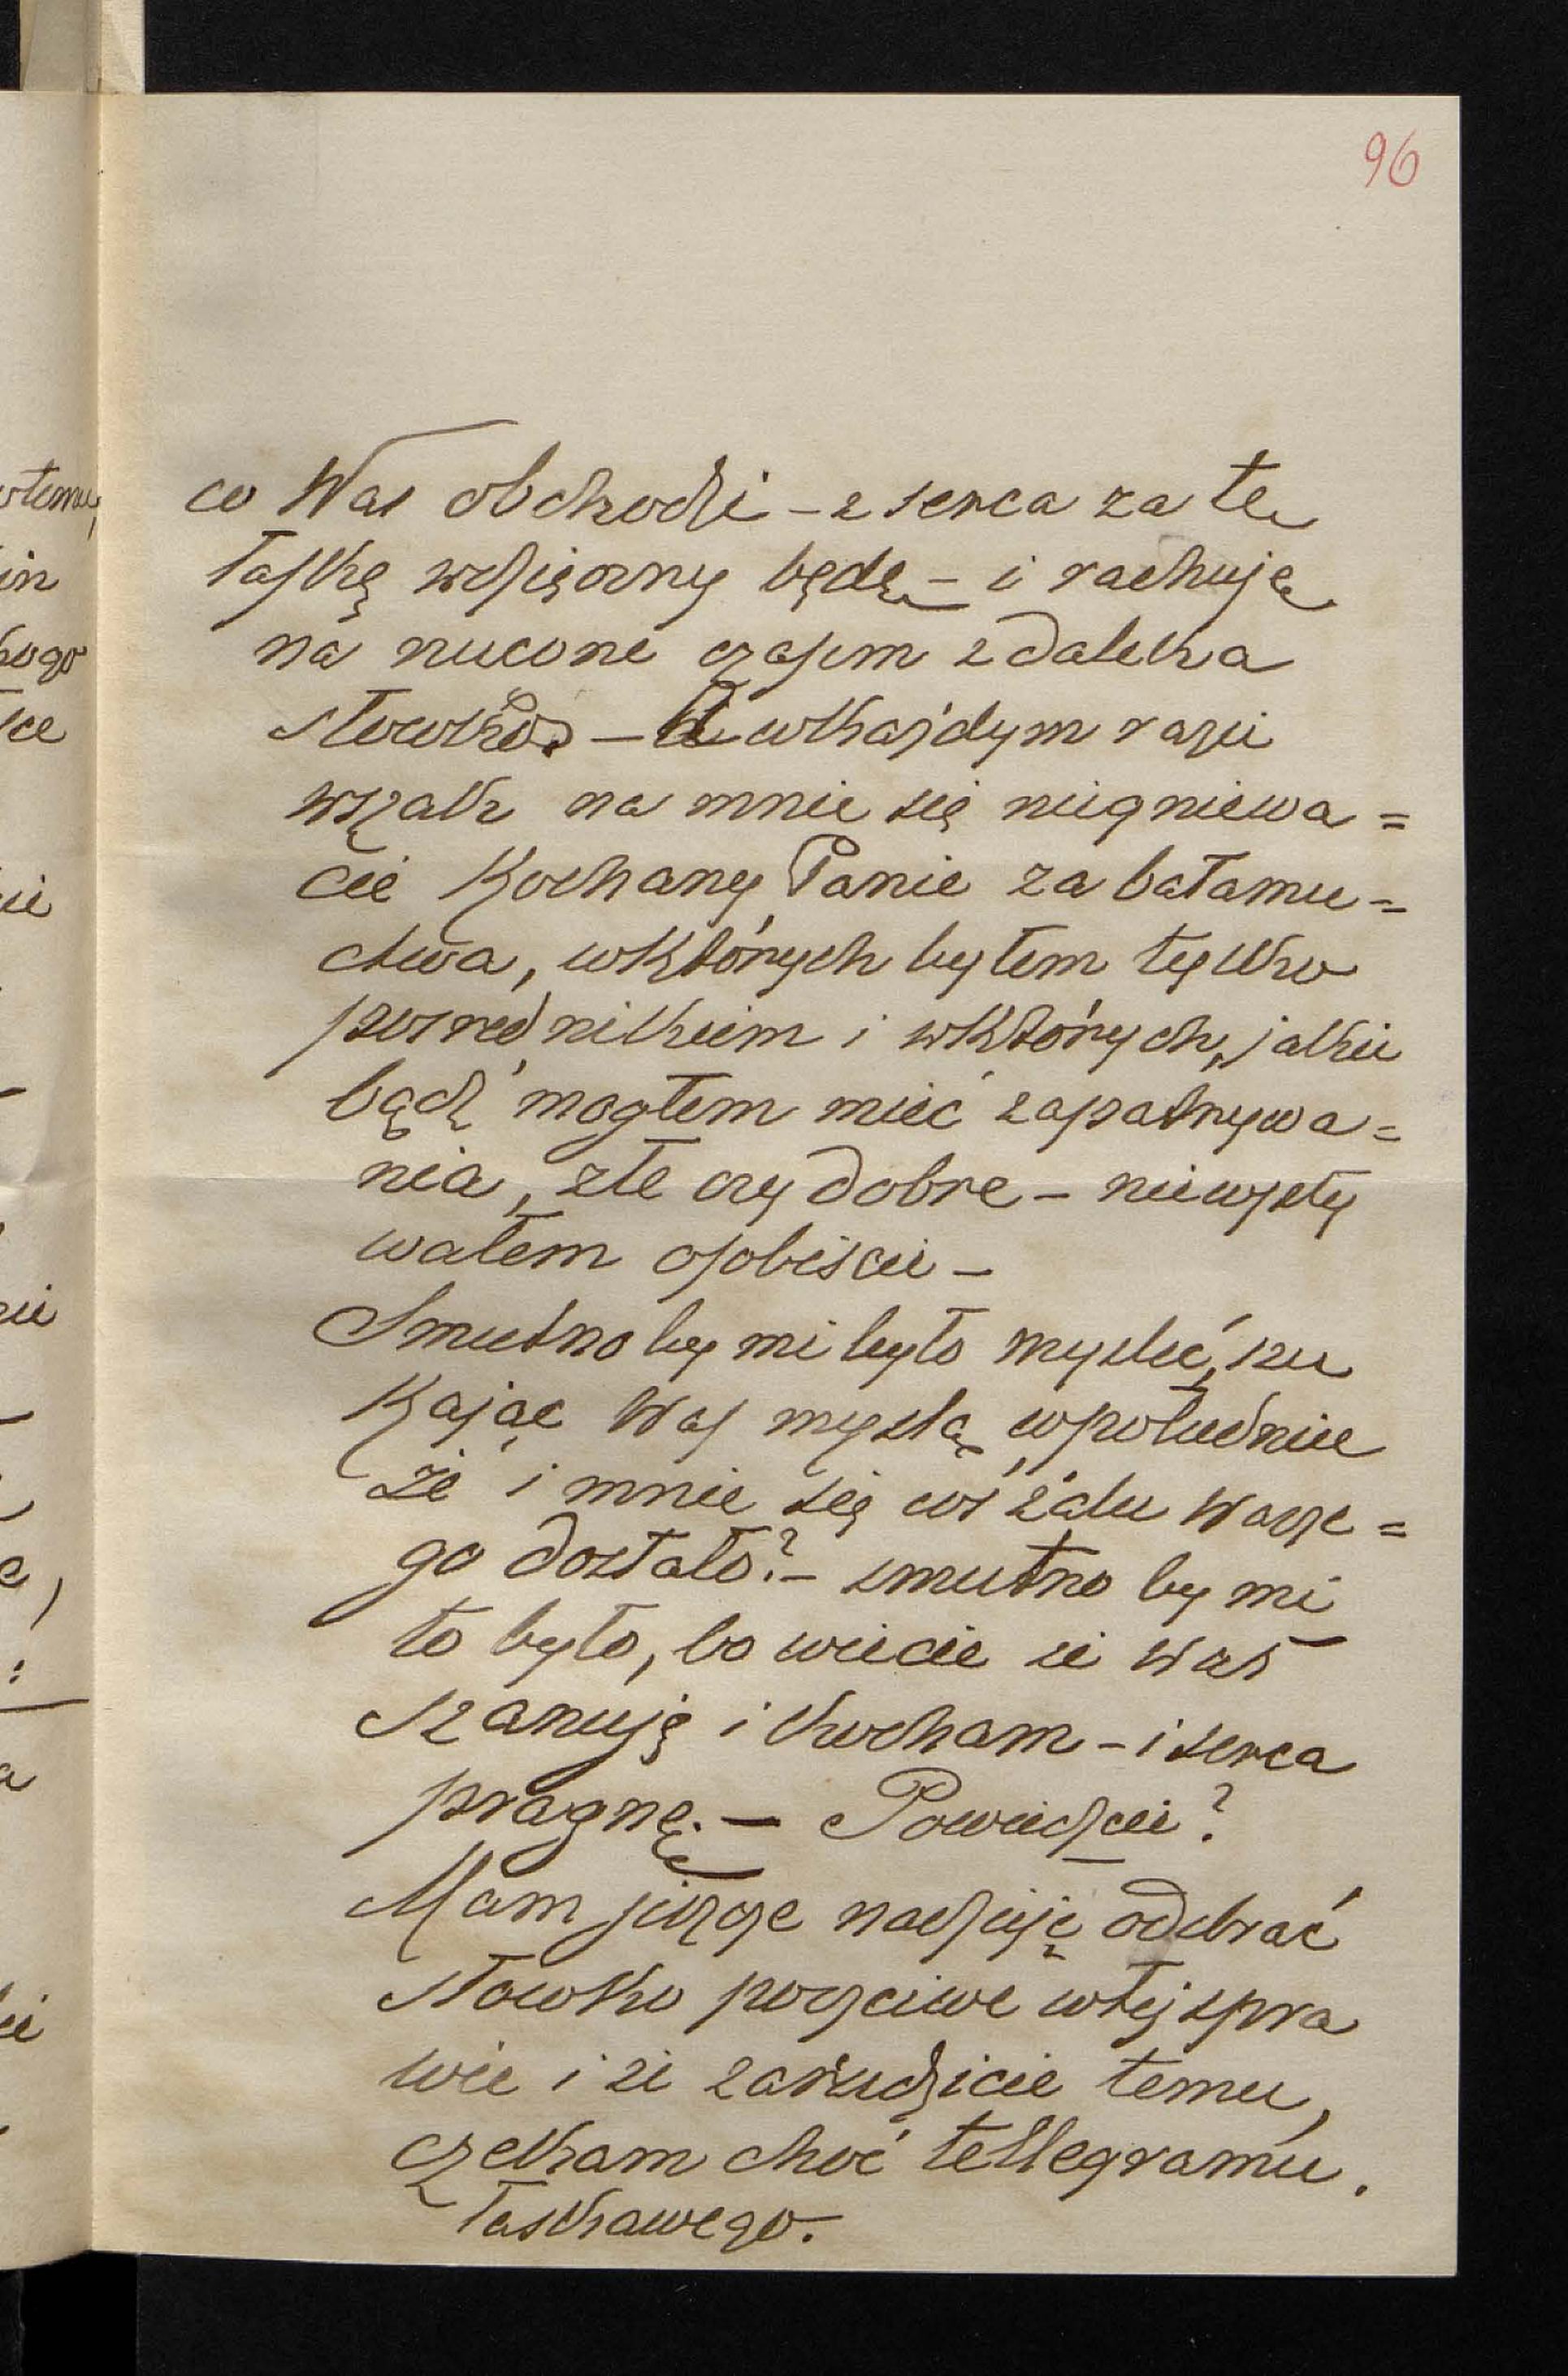 96
co Was obchodzi – z serca za tę
łaskę wdzięczny będę – i rachuję
na rzucone czasem z daleka
słówko – A wkażdym razie
wszak na mnie się niegniewa=
cie Kochany Panie za bałamu=
ctwa, wktórych byłem tylko
pośrednikiem i wktórych, jakie
bądź mogłem mieć zapatrywa=
nia, złe czy dobre –
wałem osobiście –
Smutno by mi było myśleć, szu
kając Was myślą wpołudnie
że i mnie się coś żalu Wasze=
go dostało? – smutno by mi
to było, bo wiecie że Was
szanuję i kocham – i serca
pragnę. – Powiedzcie?
Mam jeszcze nadzieję odebrać
słówko poczciwe wtej spra
wie i że zaradzicie temu,
czekam choć tellegramu.
łaskawego.
wtemu,
in
kogo